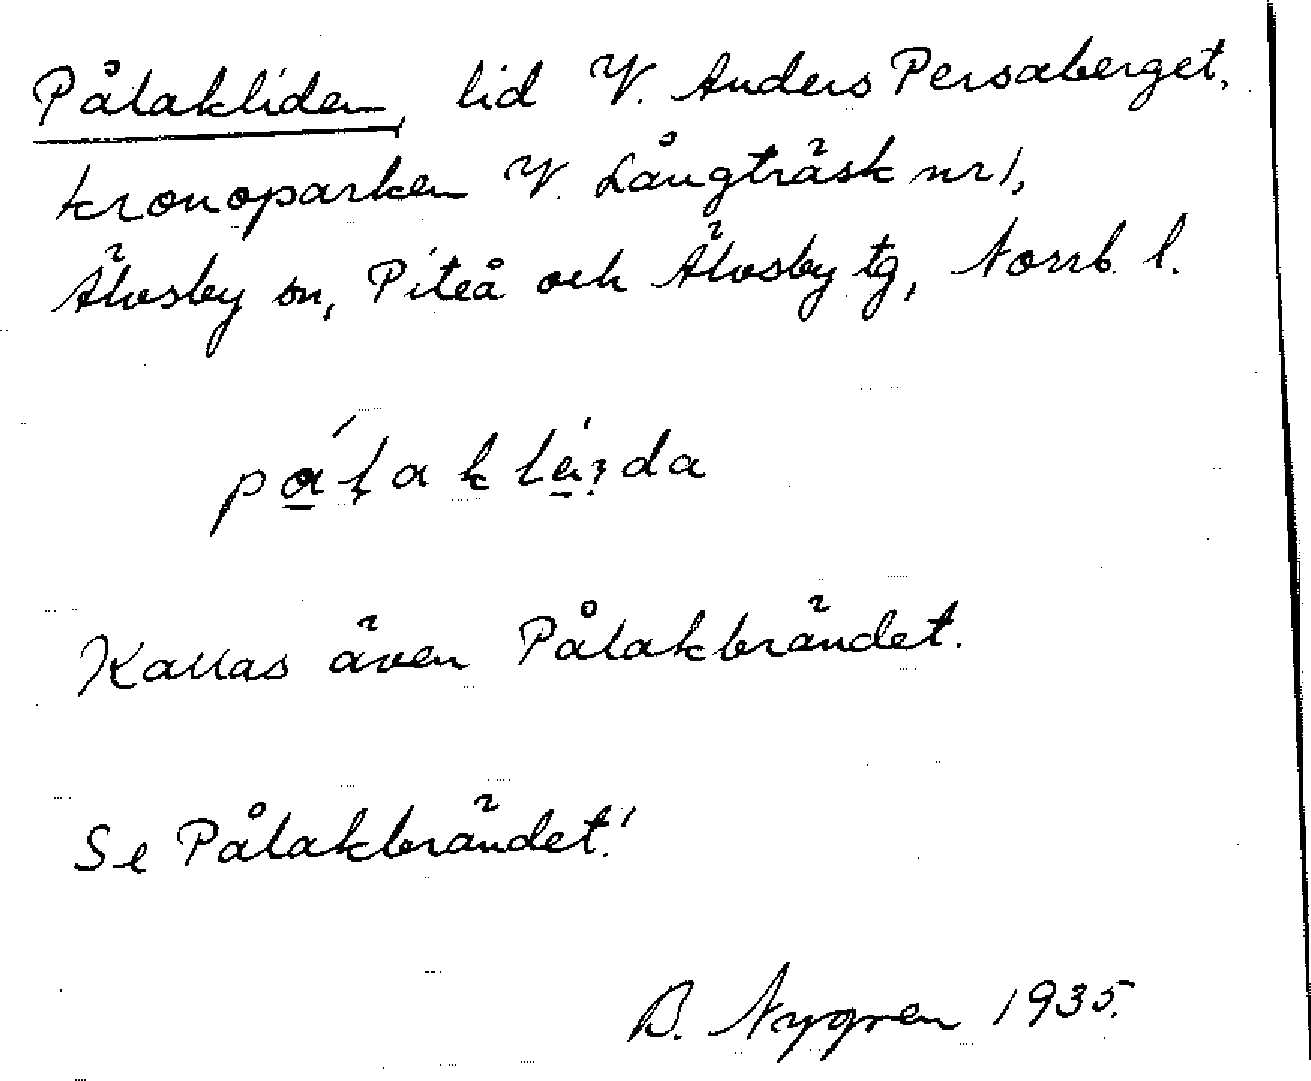 Pålakliden, lid V. Anders Persaberget,
kronoparken V. Långträsk nr 1,
Älvsby sn, Piteå och Älvsby tg, Norrb. l.
Kallas även Pålakbrändet.
Se Pålakbrändet!
B. Nygren 1935.